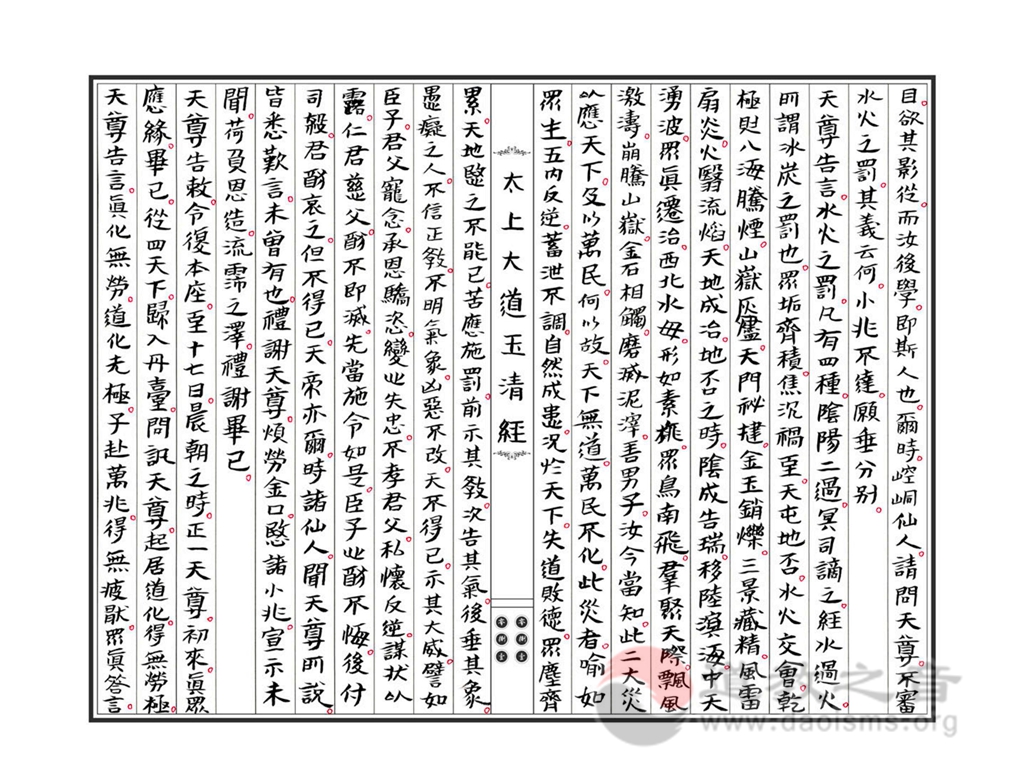 目欲其影從而汝後學即斯人也爾時崆峒仙人請問天尊不審
水火之罰其義云何小兆不達願垂分別
天尊告言水火之罰凡有四種陰陽二過冥司謫之經水過火
所謂冰炭之罰也眾垢齊積焦沉禍至天屯地否水火交會乾
極則八海騰煙山嶽灰燼天門祕揵金玉銷爍三景藏精風雷
扇炎火翳流焰天地成冶地否之時陰成告瑞移陸溟海中天
湧波眾真遷治西北水母形如素雍眾鳥南飛羣聚天際飄風
激濤崩騰山嶽金石相鐲磨滅泥滓善男子汝今當知此二大災
以應天下及以萬民何以故天下無道萬民不化此災者喻如
眾生五內反逆蓄泄不調自然成患況於天下失道敗德眾塵齊
太上大道玉清經
累天地愍之不能已苦應施罰前示其教次告其氣後垂其象
愚癡之人不信正教不明氣象凶惡不改天不得已示其大威譬如
臣子君父寵念承恩驕恣變此失忠不孝君父私懷反逆謀狀以
露仁君慈父酷不即滅先當施令如是臣子此酷不悔後付
司殺君酷哀之但不得已天帝亦爾時諸仙人聞天尊所說
皆悉歎言未曾有也禮謝天尊煩勞金口愍諸小兆宣示未
聞荷負恩造流霈之澤禮謝畢已
天尊告敕令復本座至十七日晨朝之時正一天尊初來真眾
應緣畢已從四天下歸入丹臺問訊天尊起居道化得無勞極
天尊告言真化無勞道化無極子赴萬兆得無疲厭眾真答言
道教之音
www.daoisms.org